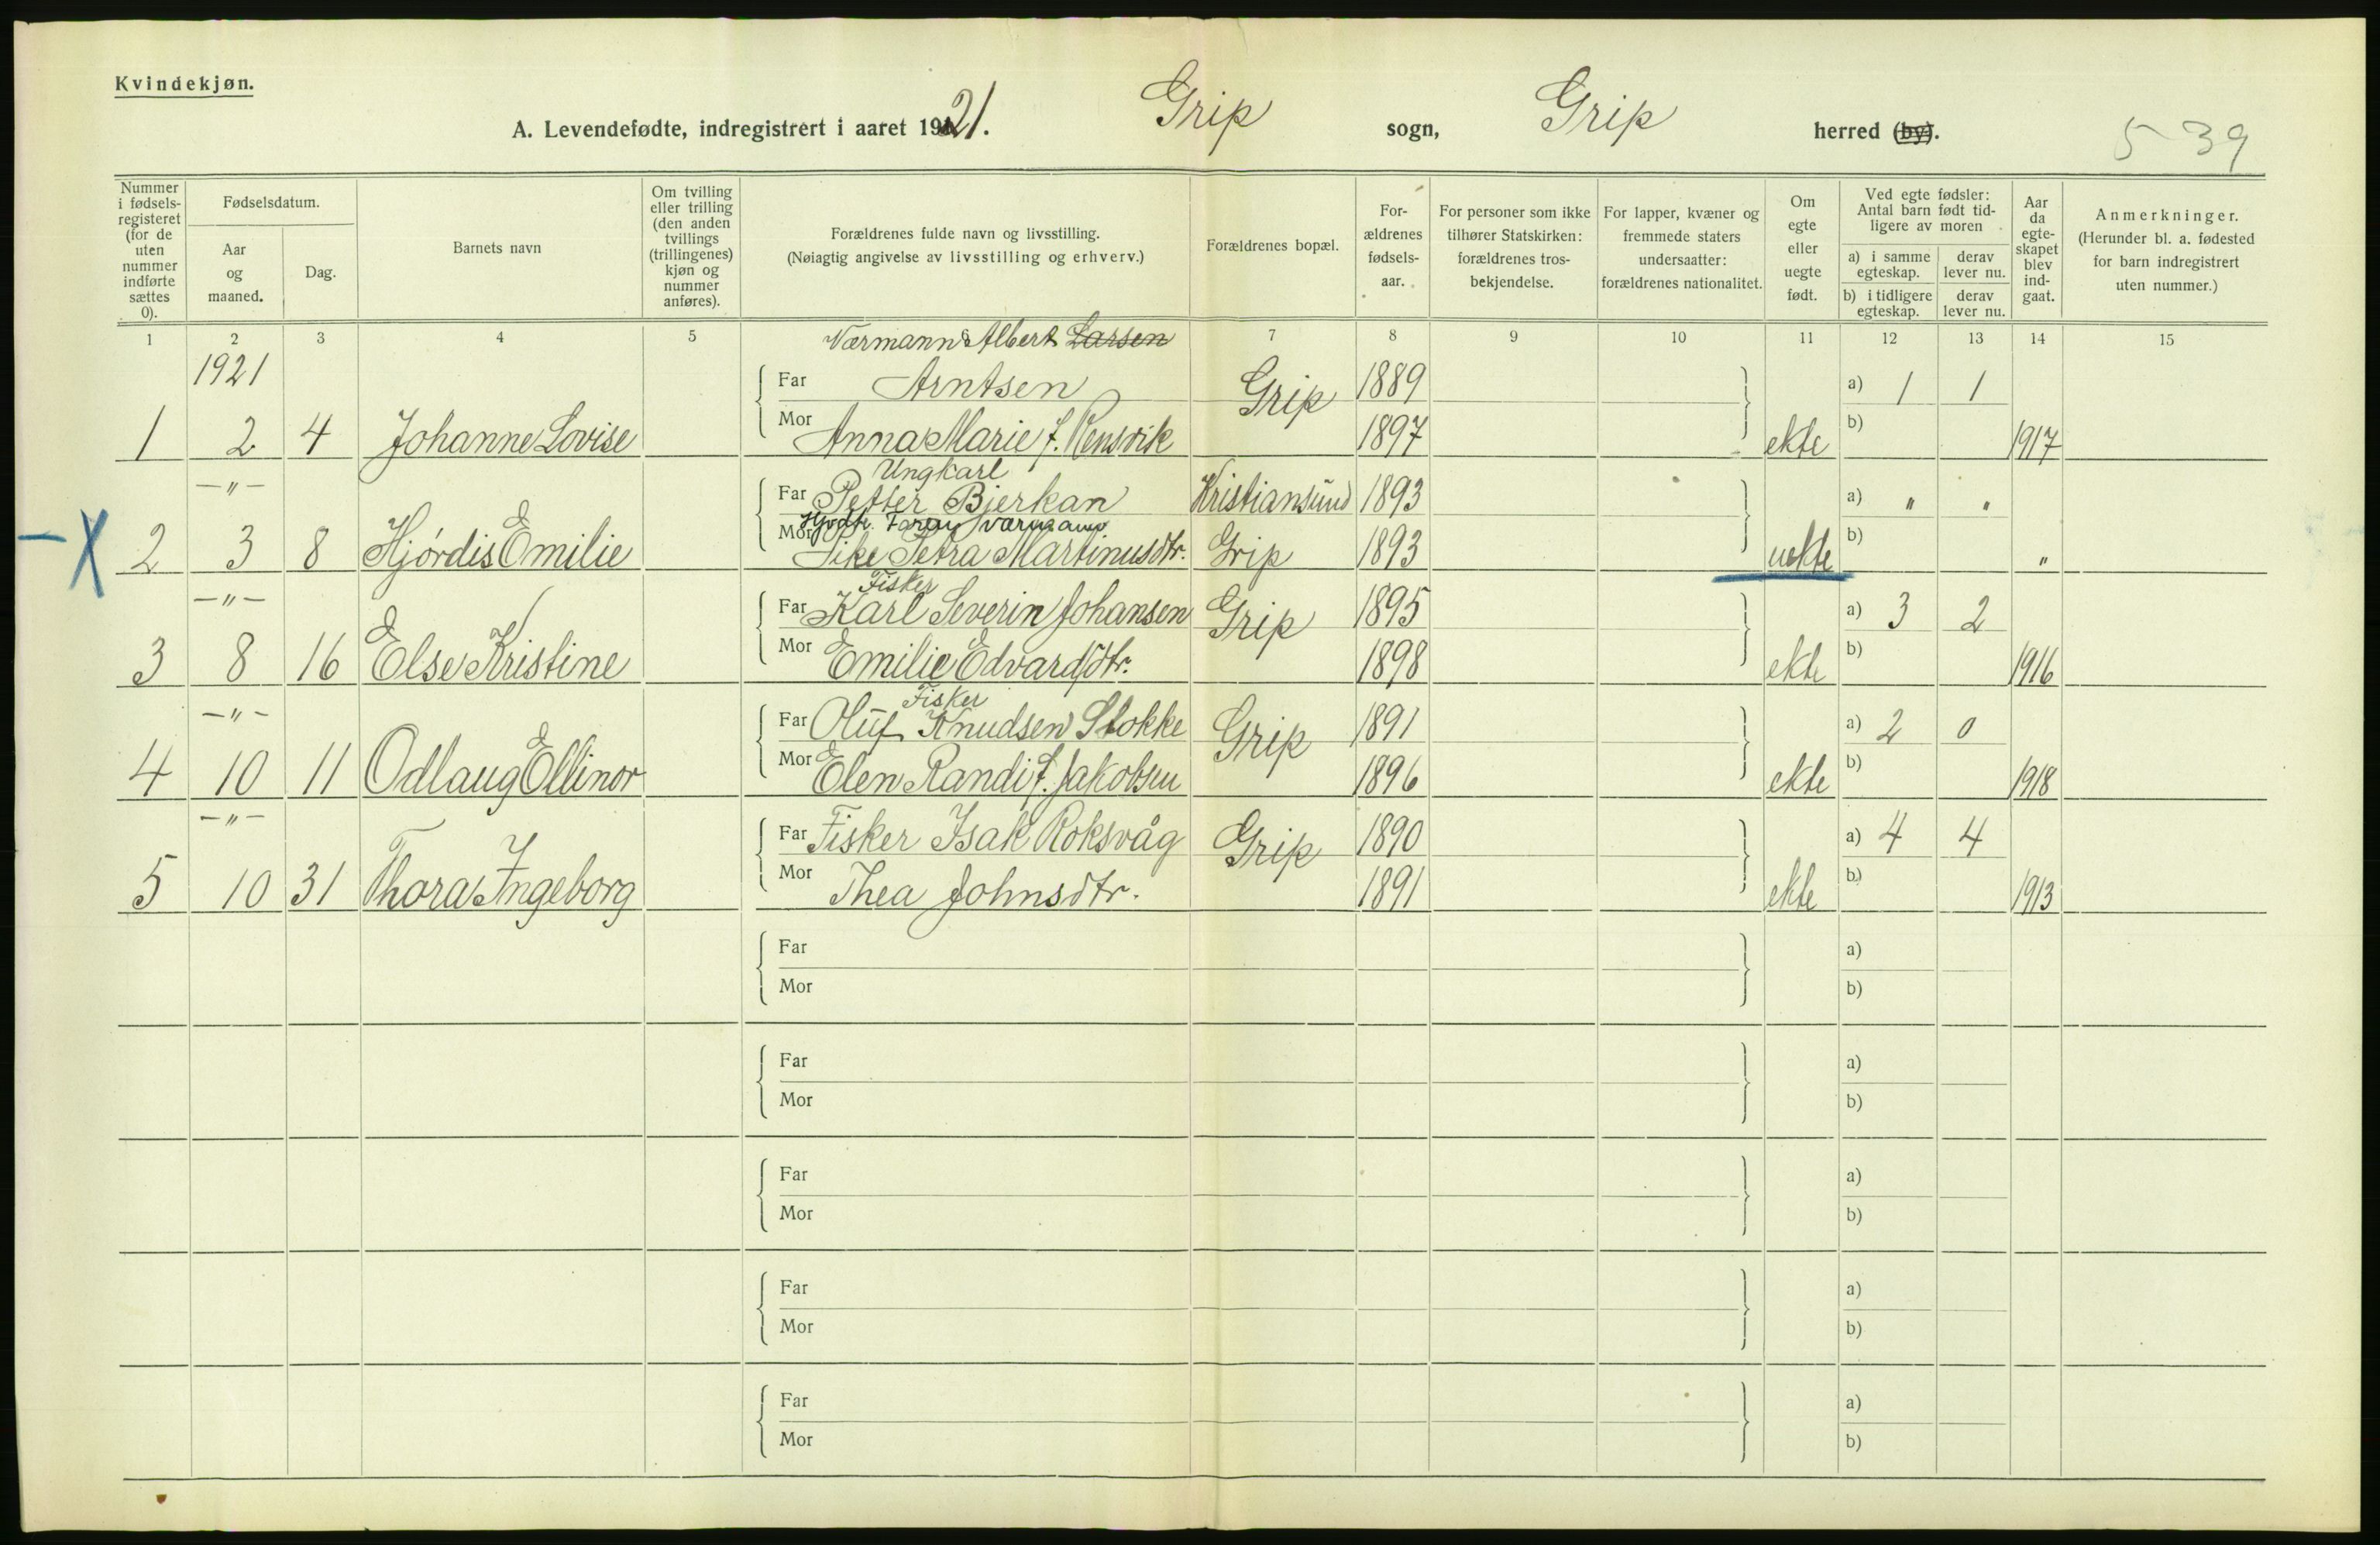 Kvindekjøn.
A. Levendefødte, indregistrert i aaret 1921. Grip sogn, Grip herred (by).
5 39
Nummer i fødsels-registeret (for de uten nummer indførte sættes 0).
Fødselsdatum.
Aar og maaned.
Dag.
Barnets navn
Om tvilling eller trilling (den anden tvillings (trillingenes) kjøn og nummer anføres).
Forældrenes fulde navn og livsstilling.
(Nøiagtig angivelse av livsstilling og erhverv.)
Forældrenes bopæl.
For-ældrenes fødsels-aar.
For personer som ikke tilhører Statskirken: forældrenes tros-bekjendelse.
For lapper, kvæner og fremmede staters undersaatter: forældrenes nationalitet.
Om egte eller uegte født.
Ved egte fødsler: Antal barn født tid-ligere av moren
a) i samme egteskap. derav lever nu.
b) i tidligere egteskap. derav lever nu.
Aar da egte-skapet blev ind-gaat.
Anmerkninger.
(Herunder bl. a. fødested for barn indregistrert uten nummer.)
1 2 3 4 5 7 8 9 10 11 12 13 14 15
Værmann Albert Larsen
1921 Far Arntsen Grip 1889 a) 1 1
1 2 4 Johanne Lovise Mor Anna Marie f. Rensvik 1897 ekte b) 1917
Ungkarl
—"— Far Petter Bjerkan Kristiansund 1893 a) " "
2 3 8 Hjørdis Emilie Mor Petra Martinusdtr. Grip 1893 uekte b) "
Fisker
—"— Far Karl Severin Johansen Grip 1895 a) 3 2
3 8 16 Else Kristine Mor Emilie Edvardsdtr. 1898 ekte b) 1916
Fisker
—"— Far Oluf Knudsen Stokke Grip 1891 a) 2 0
4 10 11 Odlaug Ellinor Mor Elen Randi f. Jakobsen 1896 ekte b) 1918
—"— Far Fisker Isak Roksvåg Grip 1890 a) 4 4
5 10 31 Thora Ingeborg Mor Thea Johnsdtr. 1891 ekte b) 1913
Far a)
Mor b)
Far a)
Mor b)
Far a)
Mor b)
Far a)
Mor b)
Far a)
Mor b)